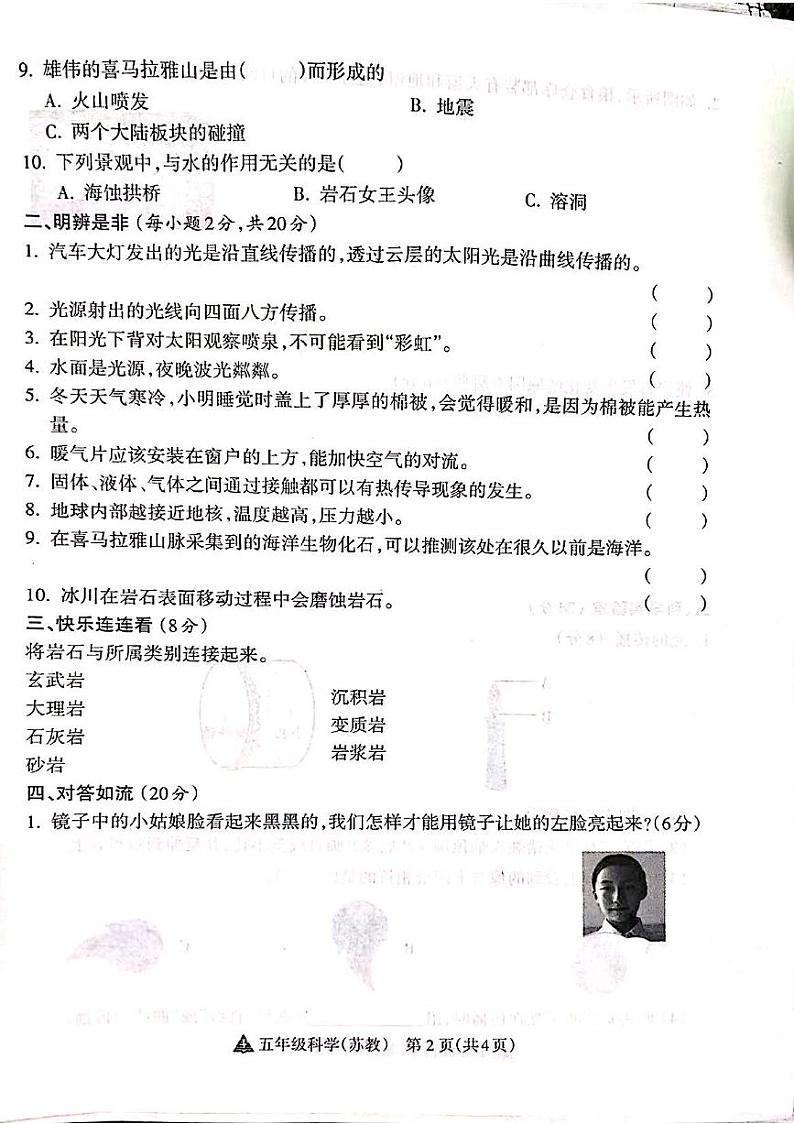 9. 雄伟的喜马拉雅山是由(　　)而形成的
A. 火山喷发　　B. 地震
C. 两个大陆板块的碰撞
10. 下列景观中,与水的作用无关的是(　　)
A. 海蚀拱桥　　B. 岩石女王头像　　C. 溶洞
二、明辨是非(每小题2分,共20分)
1. 汽车大灯发出的光是沿直线传播的,透过云层的太阳光是沿曲线传播的。
(　　)
2. 光源射出的光线向四面八方传播。(　　)
3. 在阳光下背对太阳观察喷泉,不可能看到“彩虹”。(　　)
4. 水面是光源,夜晚波光粼粼。(　　)
5. 冬天天气寒冷,小明睡觉时盖上了厚厚的棉被,会觉得暖和,是因为棉被能产生热
量。(　　)
6. 暖气片应该安装在窗户的上方,能加快空气的对流。(　　)
7. 固体、液体、气体之间通过接触都可以有热传导现象的发生。(　　)
8. 地球内部越接近地核,温度越高,压力越小。(　　)
9. 在喜马拉雅山脉采集到的海洋生物化石,可以推测该处在很久以前是海洋。
(　　)
10. 冰川在岩石表面移动过程中会磨蚀岩石。(　　)
三、快乐连连看(8分)
将岩石与所属类别连接起来。
玄武岩
沉积岩
大理岩
变质岩
石灰岩
岩浆岩
砂岩
四、对答如流(20分)
1. 镜子中的小姑娘脸看起来黑黑的,我们怎样才能用镜子让她的左脸亮起来?(6分)
五年级科学(苏教)　第2页(共4页)